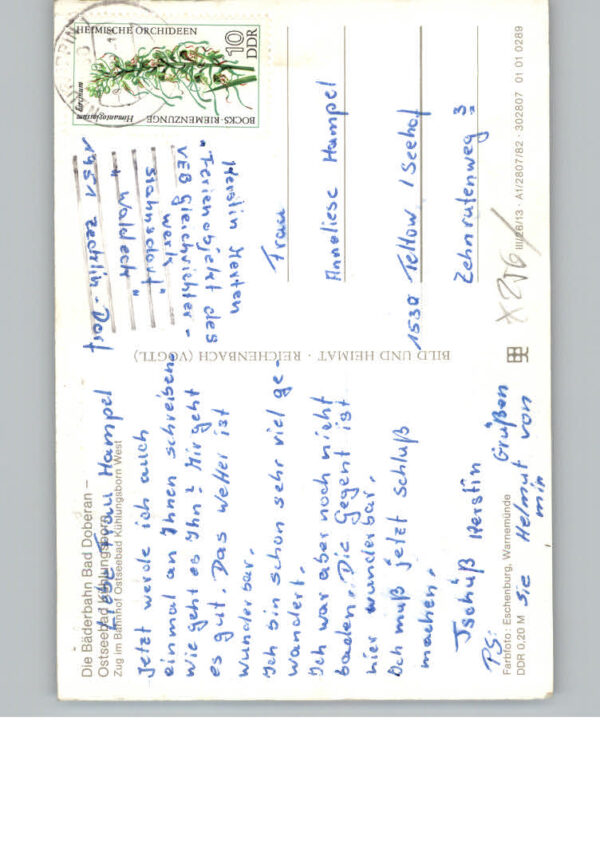 Die Bäderbahn Bad Doberan –
Ostseebad Kühlungsborn
Zug im Bahnhof Ostseebad Kühlungsborn West
Liebe Frau Hampel
jetzt werde ich auch
einmal an Ihnen schreiben
wie geht es Ihn? Mir geht
es gut. Das Wetter ist
wunderbar.
Ich bin schon sehr viel ge-
wandert.
Ich war aber noch nicht
baden. Die Gegent ist
hier wunderbar.
Ich muß jetzt schluß
machen.
Tschüß Kerstin
PS: Grüßen
Sie Helmut von
mir
Farbfoto: Eschenburg, Warnemünde
DDR 0,20 M
BILD UND HEIMAT · REICHENBACH (VOGTL)
HEIMISCHE ORCHIDEEN
10
DDR
BOCKS-RIEMENZUNGE
Himantoglossum
hircinum
Kerstin Merten
"Ferienobjekt des
VEB Gleichrichter-
werk
Stahnsdorf"
"Waldeck"
1951 Zechlin-Dorf
Frau
Anneliese Hampel
1530 Teltow / Seehof
Zehnrutenweg 3
III/26/13 · A1/2807/82 · 302807 01 01 0269